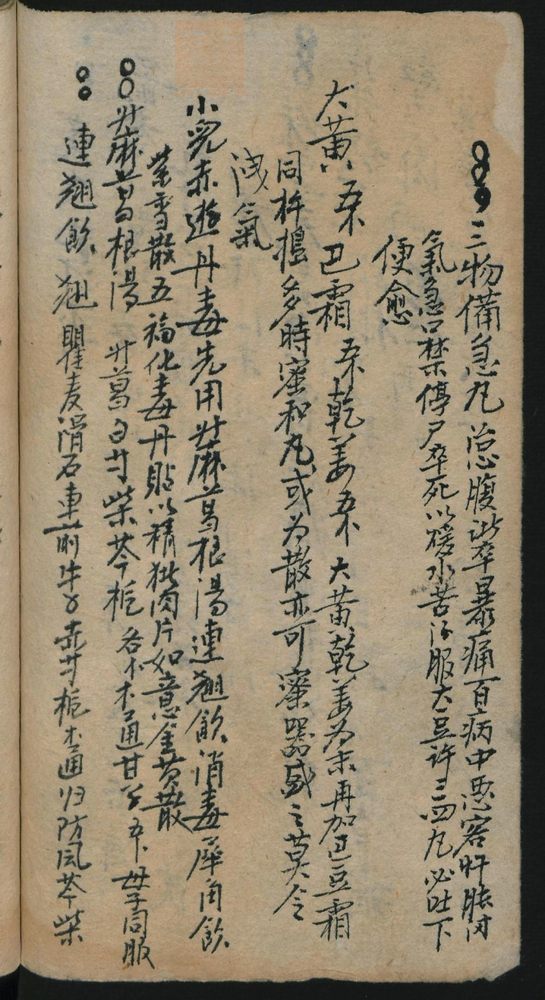 三物備急丸 心腹諸卒暴痛百病中悪客忤脹満
氣急口禁停尸卒死以緩水苦酒服大豆許三四丸必吐下
便愈
大黄 巴霜 乾姜 大黄乾姜為末再加巴豆霜
同杵搗多時蜜和丸或為散亦可蜜器盛之莫令
洩氣
小児赤遊丹毒先用升麻葛根湯連翹飲消毒犀角飲
紫雪散五福化毒丹貼以精猪肉片如意金黄散
升麻葛根湯 升葛白芍柴芩梔各 木通甘 母子同服
連翹飲 翹瞿麦滑石車前牛子赤芍梔木通归防风芩柴